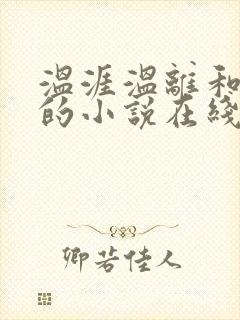 温涯温離和
的小説在綫
卿若佳人